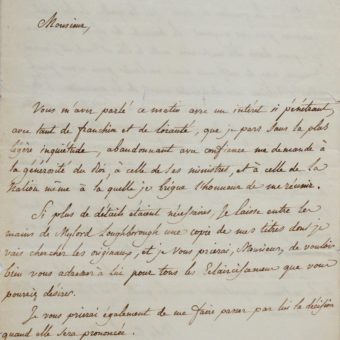 Monsieur,
Vous m'avez parlé ce matin avec un intérêt si pénétrant,
avec tant de franchise et de loyauté, que je pars sans la plus
légère inquiétude, abandonnant avec confiance ma demande à
la générosité du Roi, à celle de ses ministres, et à celle de la
Nation même à la quelle je brigue l'honneur de me réunir.
Si plus de détails étaient nécessaires, Je laisse entre les
mains de Mylord Loughborough une copie de mes titres dont je
vais chercher les originaux, et je vous prierai, Monsieur, de vouloir
bien vous adresser à lui pour tous les Eclaircissemens que vous
pourriez désirer.
Je vous prierai également de me faire passer par lui la décision
quand elle sera prononcée.